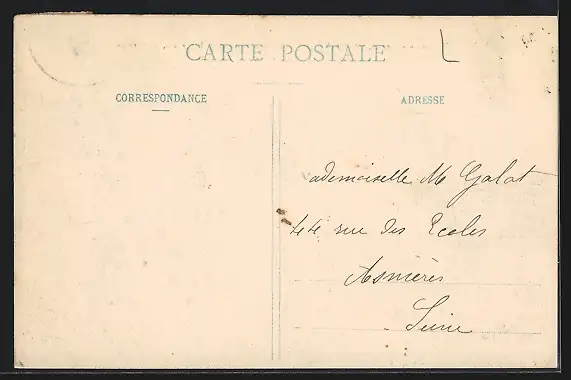 CARTE POSTALE
CORRESPONDANCE
ADRESSE
ademoiselle M Galat
44 rue des Ecoles
Asnières
Seine